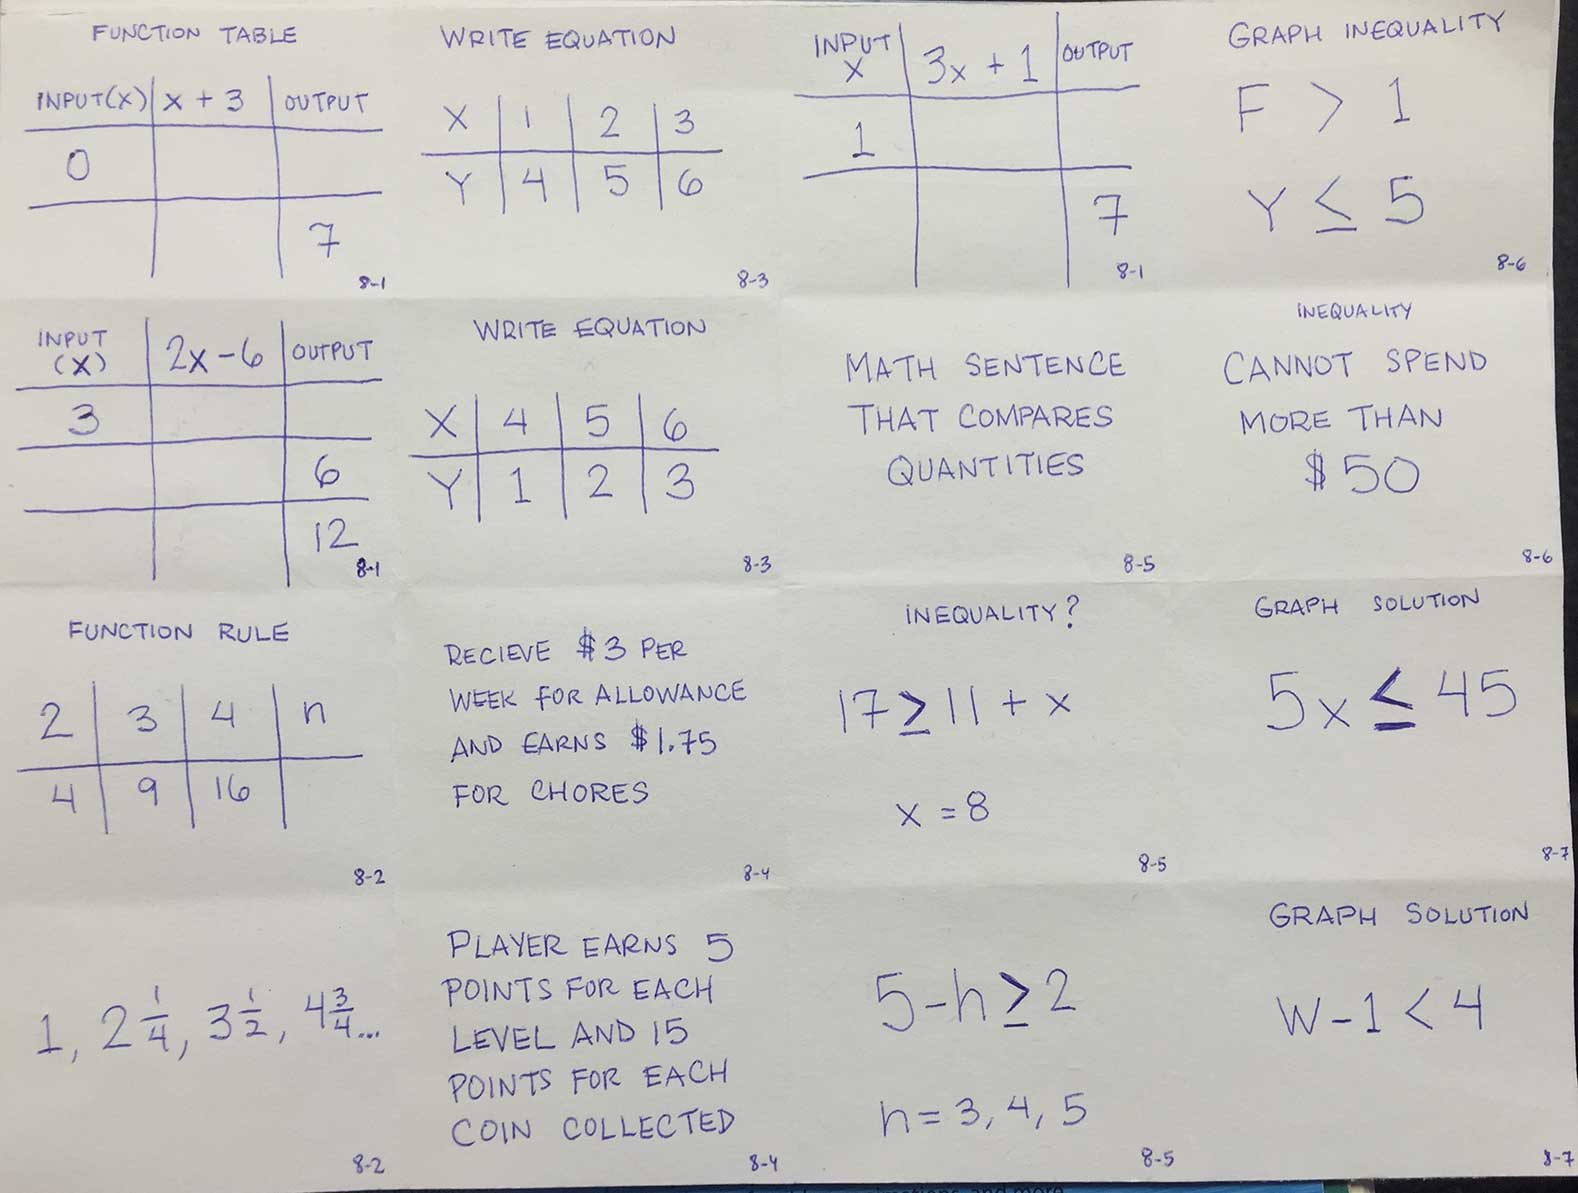 FUNCTION TABLE
INPUT(X) X + 3 OUTPUT
0
7
8-1
WRITE EQUATION
X 1 2 3
Y 4 5 6
8-3
INPUT X 3x + 1 OUTPUT
1
7
8-1
GRAPH INEQUALITY
F > 1
Y ≤ 5
8-6
INPUT (X) 2x - 6 OUTPUT
3
6
12
8-1
WRITE EQUATION
X 4 5 6
Y 1 2 3
8-3
MATH SENTENCE
THAT COMPARES
QUANTITIES
8-5
INEQUALITY
CANNOT SPEND
MORE THAN
$50
8-6
FUNCTION RULE
2 3 4 n
4 9 16
8-2
RECIEVE $3 PER
WEEK FOR ALLOWANCE
AND EARNS $1.75
FOR CHORES
8-4
INEQUALITY?
17 ≥ 11 + x
x = 8
8-5
GRAPH SOLUTION
5x ≤ 45
8-7
1, 2 1/4, 3 1/2, 4 3/4...
8-2
PLAYER EARNS 5
POINTS FOR EACH
LEVEL AND 15
POINTS FOR EACH
COIN COLLECTED
8-4
5 - h ≥ 2
h = 3, 4, 5
8-5
GRAPH SOLUTION
W - 1 < 4
8-7
and more